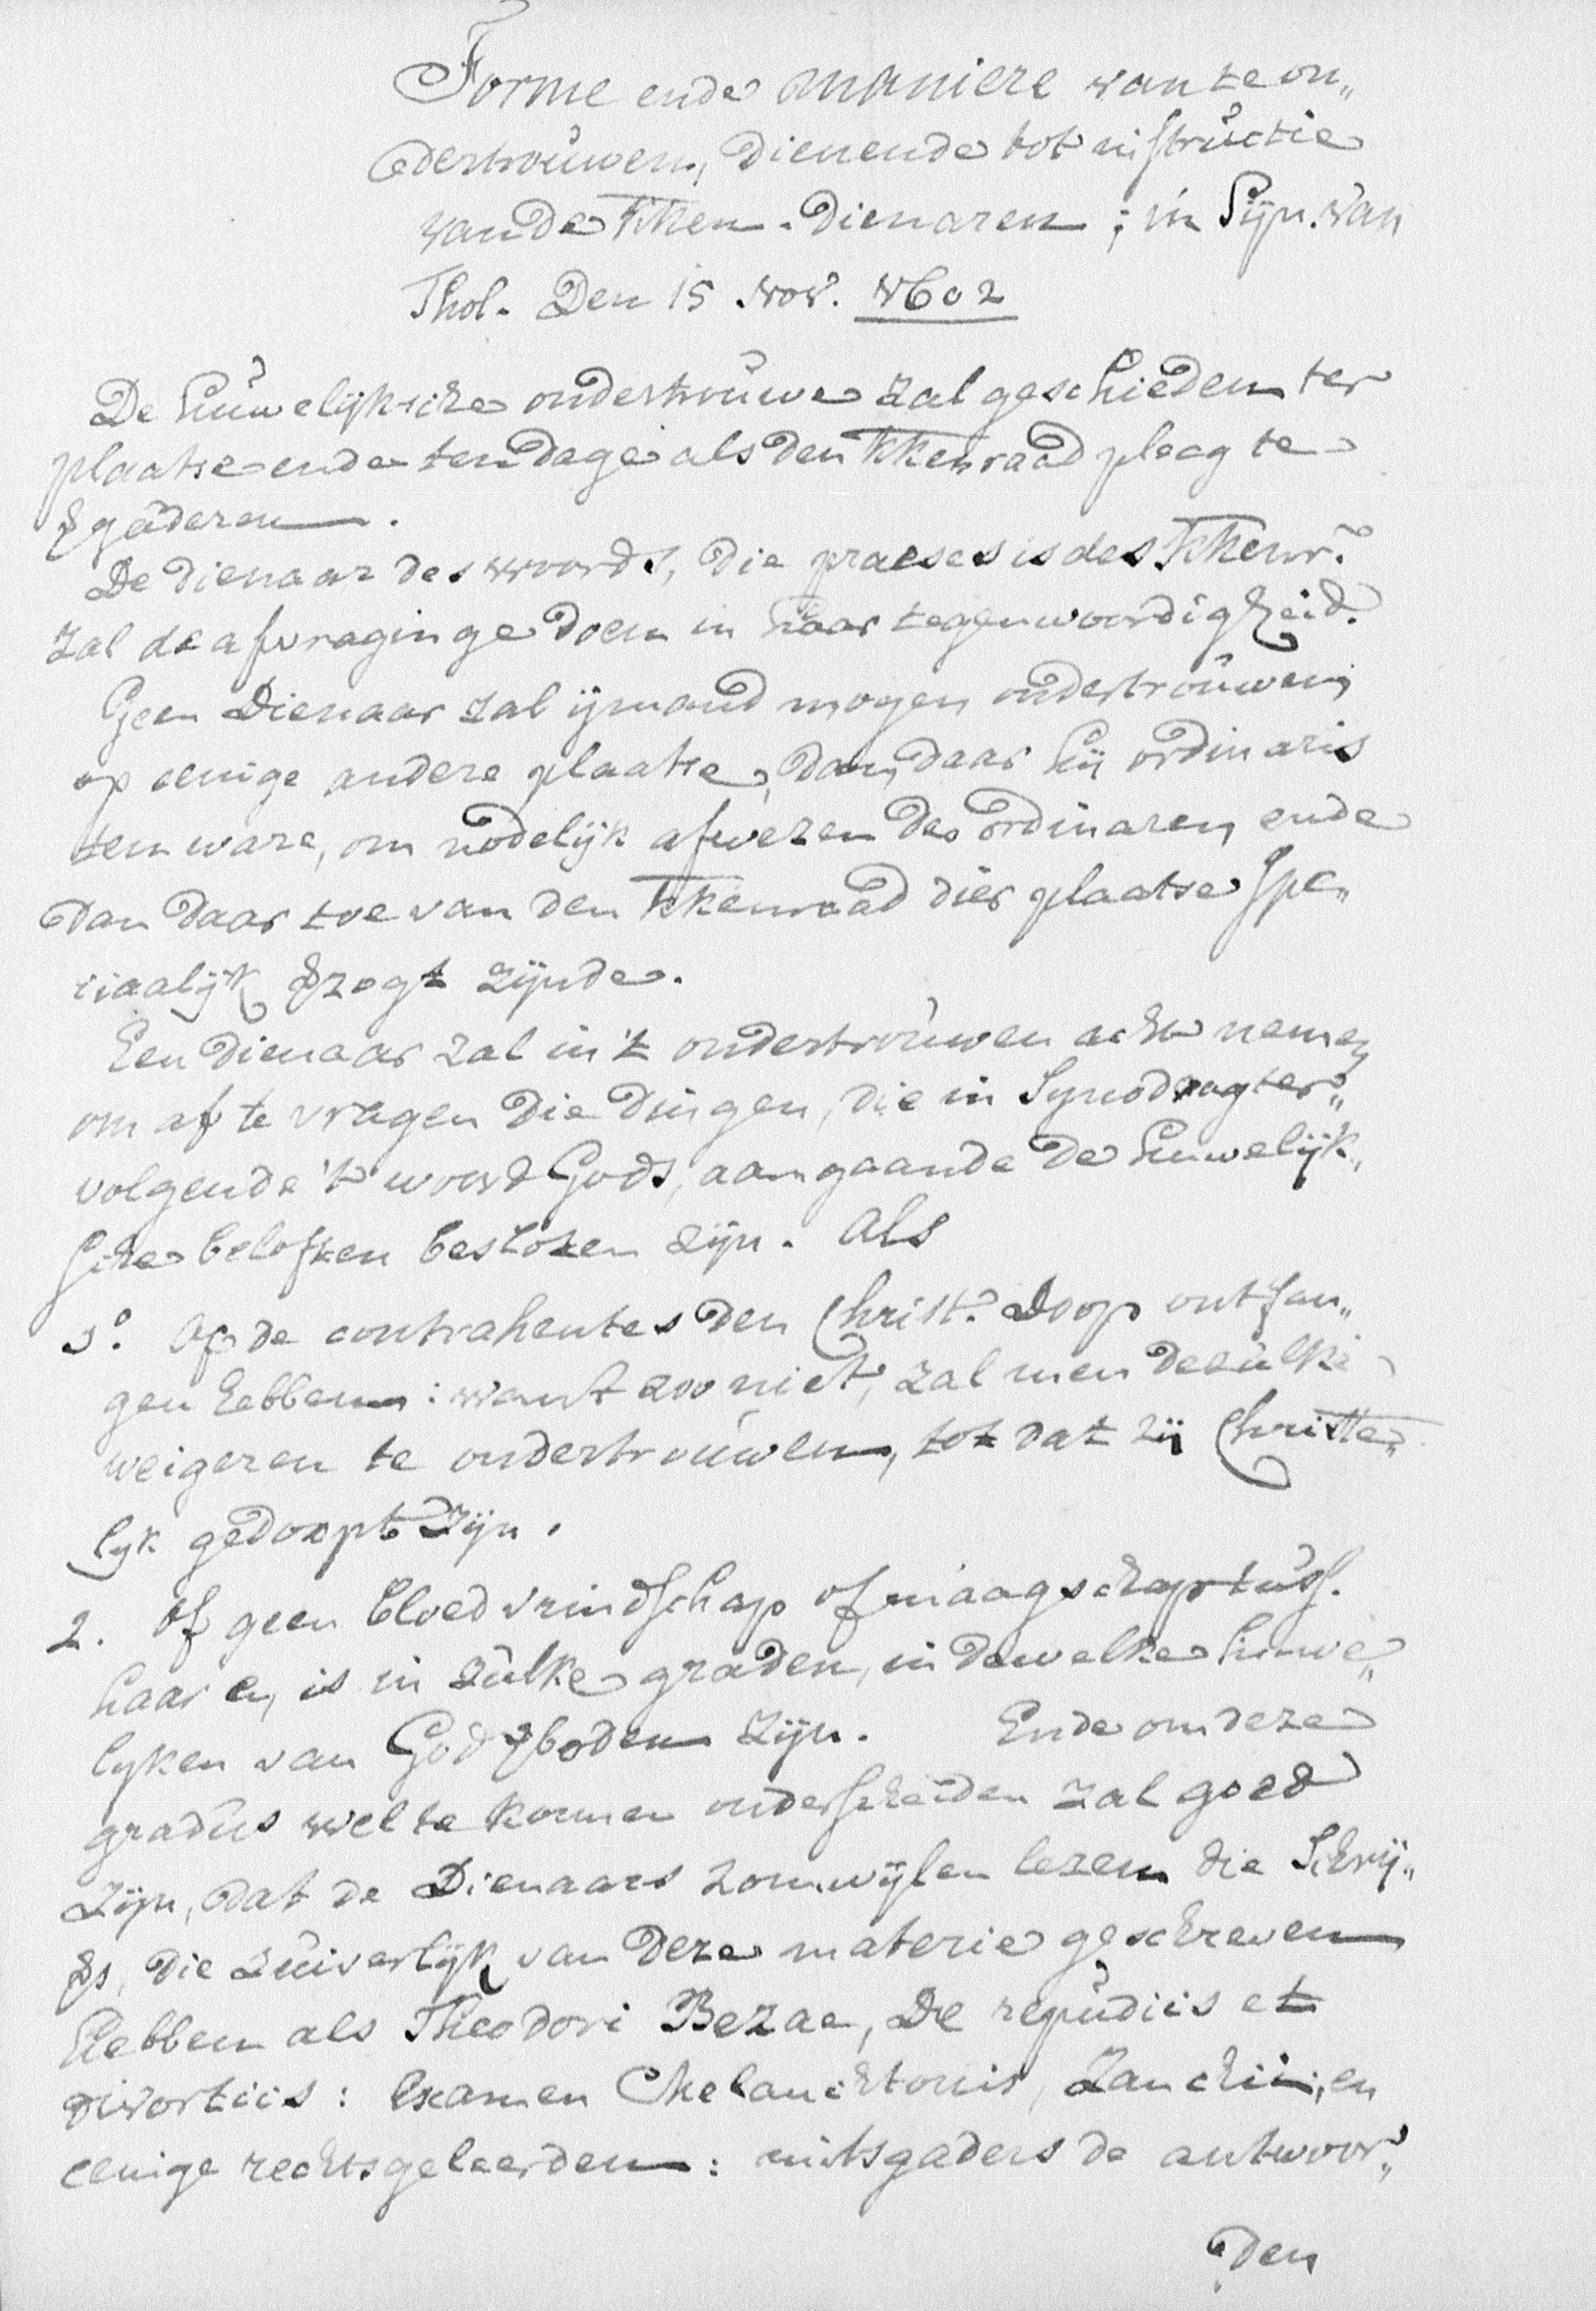 Forme ende maniere van te on„
dertrouwen, dienende tot instructie
van de kken-dienaren; in Syn. van
Thol. Den 15 Nov. 1602
De huwelijksche ondertrouwe zal geschieden ter
plaatse ende ten dage als den kkenraad pleeg te
vgâderen.
De dienaar des woords, die praeses is des kkenr.
zal de afvraginge doen in haar tegenwoordigheid.
Geen Dienaar zal ijmand mogen ondertrouwen
op eenige andere plaatse, dan daar hij ordinaris
ten ware, om nodelijk afwezen des ordinaren, ende
dan daar toe van den kkenraad dier plaatse spe„
ciaalijk vzogt zijnde.
Een dienaar zal in 't ondertrouwen acht nemen
om af te vragen die dingen, die in Synod.
volgende 't woord Gods, aangaande de huwelijk„
sche beloften besloten zijn. Als
1o. Of de contrahentes den Christ. Doop ontfan„
gen hebben: want zoo niet, zal men de zulke
weigeren te ondertrouwen, tot dat zij Christe„
lyk gedoopt zijn.
2. Of geen bloedvrindschap of maagschap tuss.
haar en is in zulke graden, in dewelke huwe„
lyken van God vboden zijn. Ende om deze
gradus wel te konnen onderscheiden zal goed
zijn, dat de Dienaars zomwijlen lezen die Schrij„
vs, die zuiverlijk van deze materie geschreven
hebben als Theodori Bezae, De repudiis et
divortiis: Examen Melanchtonis, Zanchii, en
eenige rechtsgeleerden: mitsgaders de antwoor„
den